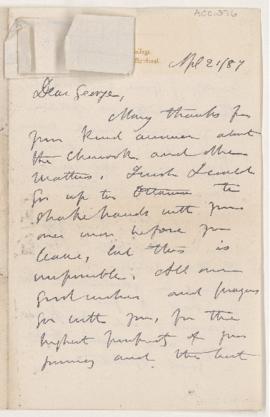 ACC. 276
Apl 21/87
Dear George,
Many thanks for
your kind answer about
the Cheroots and other
matters. I wish I could
go up to Ottawa to
shake hands with you
once more before you
leave, but this is
impossible. All our
good wishes and prayers
go with you, for the
highest prosperity of your
journey and the best